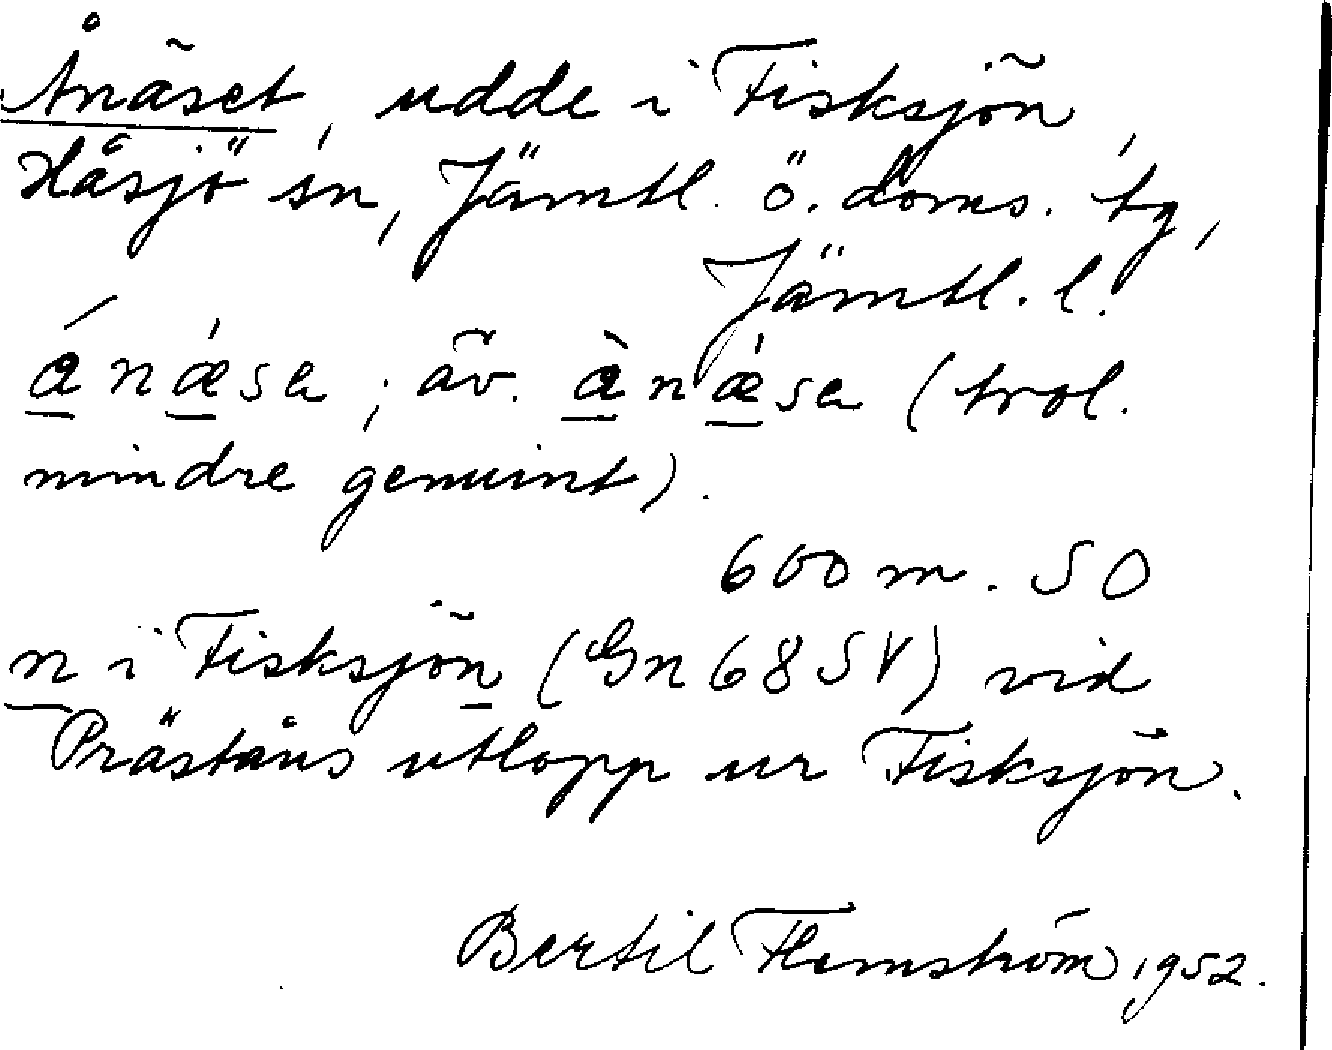 Ånäset, udde i Fisksjön,
Håsjö sn, Jämtl. ö. doms. tg,
Jämtl. l.
á n ǽ sa ; äv. à n ǽ sa (trol.
mindre genuint).
600 m. SO
n i Fisksjön (Gn 68 SV) vid
Präståns utlopp ur Fisksjön.
Bertil Flemström 1952.